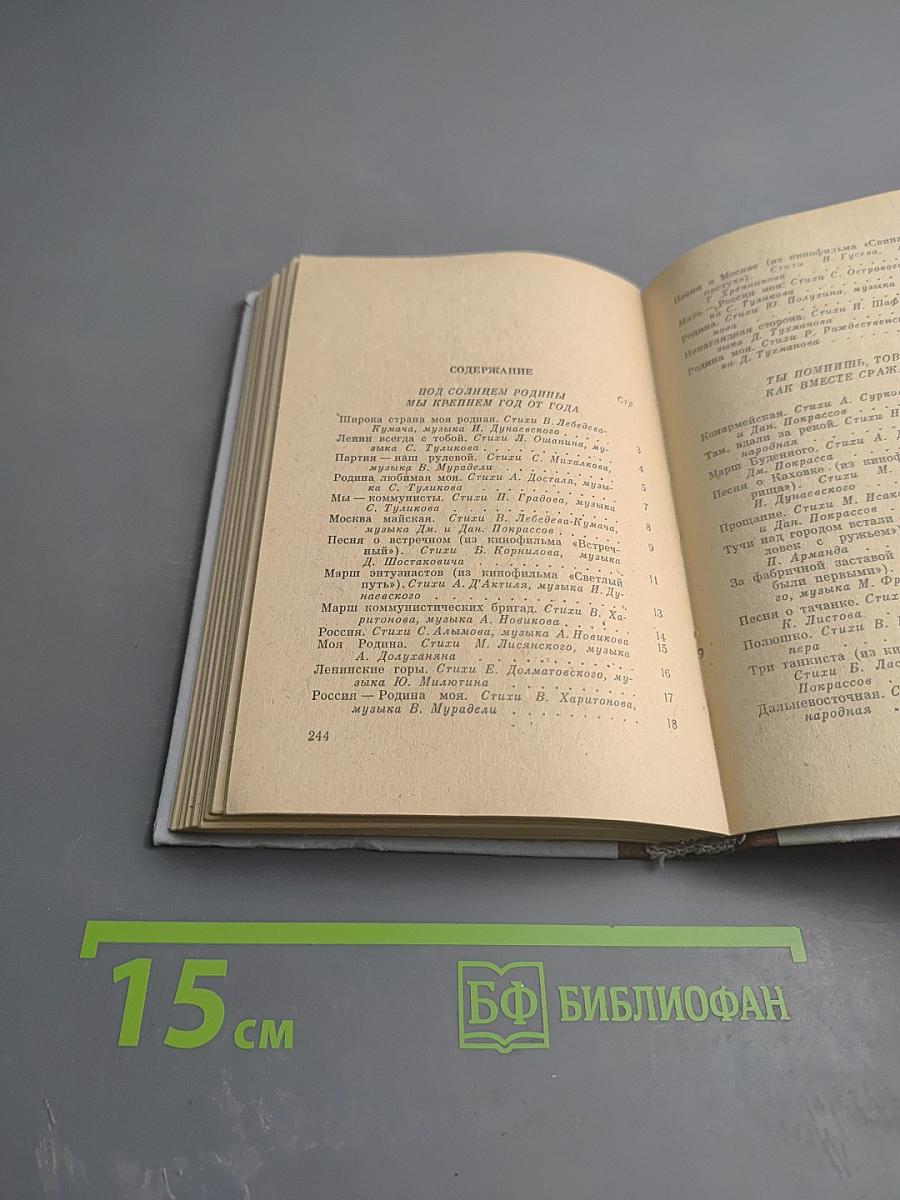 СОДЕРЖАНИЕ
ПОД СОЛНЦЕМ РОДИНЫ
МЫ КРЕПНЕМ ГОД ОТ ГОДА
Стр.
Широка страна моя родная. Стихи В. Лебедева-
Кумача, музыка И. Дунаевского . . . . . 3
Ленин всегда с тобой. Стихи Л. Ошанина, му-
зыка С. Туликова . . . . . . . . 4
Партия — наш рулевой. Стихи С. Михалкова,
музыка В. Мурадели . . . . . . . 5
Родина любимая моя. Стихи А. Досталя, музы-
ка С. Туликова . . . . . . . . 7
Мы — коммунисты. Стихи П. Градова, музыка
С. Туликова . . . . . . . . 8
Москва майская. Стихи В. Лебедева-Кумача,
музыка Дм. и Дан. Покрассов . . . . . 9
Песня о встречном (из кинофильма «Встреч-
ный»). Стихи Б. Корнилова, музыка
Д. Шостаковича . . . . . . . . 11
Марш энтузиастов (из кинофильма «Светлый
путь»). Стихи А. Д'Актиля, музыка И. Ду-
наевского . . . . . . . . 13
Марш коммунистических бригад. Стихи В. Ха-
ритонова, музыка А. Новикова . . . . . 14
Россия. Стихи С. Алымова, музыка А. Новикова 15
Моя Родина. Стихи М. Лисянского, музыка
А. Долуханяна . . . . . . . . 16
Ленинские горы. Стихи Е. Долматовского, му-
зыка Ю. Милютина . . . . . . . 17
Россия — Родина моя. Стихи В. Харитонова,
музыка В. Мурадели . . . . . . . 18
244
Песня о Москве (из кинофильма «Свина
пастух»). Стихи В. Гусева,
Т. Хренникова
Мать — Россия моя. Стихи С. Островог
ка С. Туликова
Родина. Стихи Ю. Полухина, музыка
нова
Ненаглядная сторона. Стихи И. Шаф
зыка Д. Тухманова
Родина моя. Стихи Р. Рождественск
ка Д. Тухманова
ТЫ ПОМНИШЬ, ТОВ
КАК ВМЕСТЕ СРАЖ
Конармейская. Стихи А. Сурко
и Дан. Покрассов
Там, вдали за рекой. Стихи Н
народная
Марш Буденного. Стихи А. Д
Дм. Покрасса
Песня о Каховке (из киноф
рищав). Стихи М.
И. Дунаевского
Прощание. Стихи М. Исак
и Дан. Покрассов
Тучи над городом встали
ловек с ружьем»)
П. Арманда
За фабричной заставой
были первыми»).
го, музыка М. Фр
Песня о тачанке. Стих
К. Листова
Полюшко. Стихи В.
пера
Три танкиста (из ки
Стихи Б. Лас
Покрассов
Дальневосточная. С
народная
15 см
БФ БИБЛИОФАН